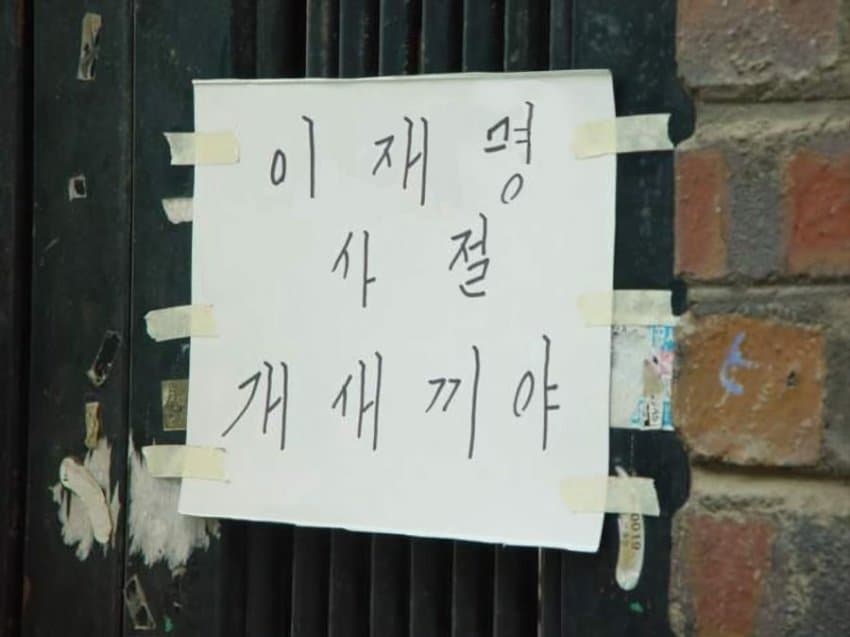 이재명
사절
개새끼야